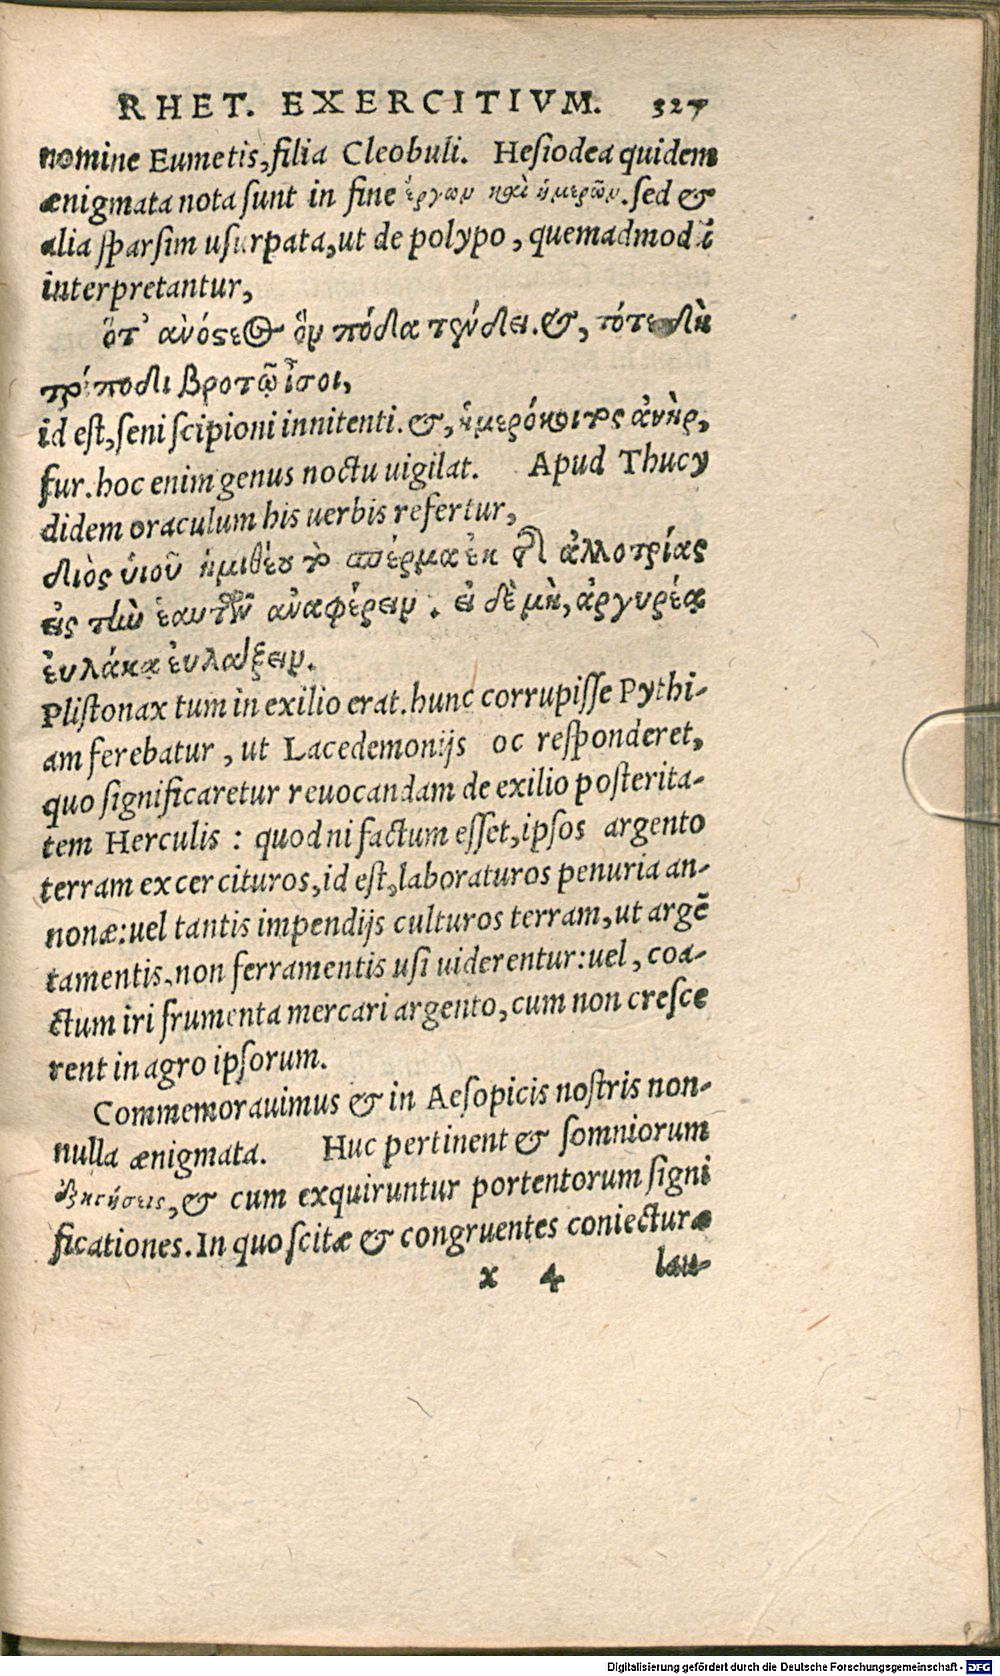 RHET. EXERCITIVM. 327
nomine Eumetis, filia Cleobuli. Hesiodea quidem
ænigmata nota sunt in fine ἔργων καὶ ἡμερῶν. sed &
alia sparsim usurpata, ut de polypo, quemadmodũ
interpretantur,
ὅτ’ ἀνόστεος ὃν πόδα τένδει. &, τότε δὴ
τρίποδι βροτῷ ἶσοι,
id est, seni scipioni innitenti. &, ἡμερόκοιτος ἀνὴρ,
fur. hoc enim genus noctu uigilat. Apud Thucy
didem oraculum his uerbis refertur,
διὸς ὑιοῦ ἡμιθέου τὸ σπέρμα ἐκ τῆς ἀλλοτρίας
εἰς τὴν ἑαυτῶν ἀναφέρειν. εἰ δὲ μὴ, ἀργυρέᾳ
ἐυλάκᾳ ἐυλάξειν.
Plistonax tum in exilio erat. hunc corrupisse Pythi-
am ferebatur, ut Lacedemonijs oc responderet,
quo significaretur reuocandam de exilio posterita-
tem Herculis: quod ni factum esset, ipsos argento
terram excercituros, id est, laboraturos penuria an-
nonæ: uel tantis impendijs culturos terram, ut argẽ
tamentis, non ferramentis usi uiderentur: uel, coa-
ctum iri frumenta mercari argento, cum non cresce
rent in agro ipsorum.
Commemorauimus & in Aesopicis nostris non-
nulla ænigmata. Huc pertinent & somniorum
&, cum exquiruntur portentorum signi
ficationes. In quo scitæ & congruentes coniecturæ
x 4 lau-
Digitalisierung gefördert durch die Deutsche Forschungsgemeinschaft - DFG